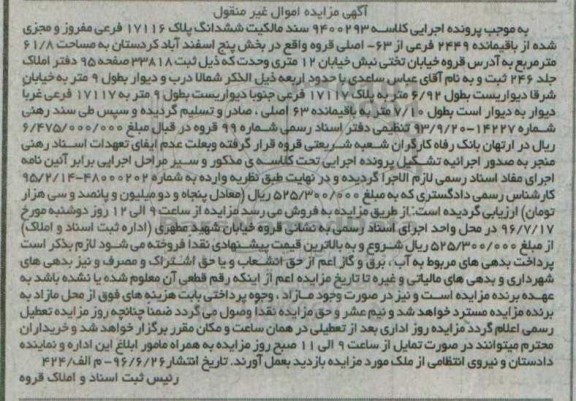 آگهی مزایده اموال غیر منقول
به موجب پرونده اجرایی کلاسه ۹۴۰۰۲۹۳ سند مالکیت ششدانگ پلاک ۱۷۱۱۶ فرعی مفروز و مجزی
شده از باقیمانده ۲۴۴۹ فرعی از ۶۳- اصلی قروه واقع در بخش پنج اسفند آباد کردستان به مساحت ۶۱/۸
مترمربع به آدرس قروه خیابان تختی نبش خیابان ۱۲ متری وحدت که ذیل ثبت ۳۳۸۱۸ صفحه ۹۵ دفتر املاک
جلد ۲۴۶ ثبت و به نام آقای عباس ساعدی با حدود اربعه ذیل الذکر شمالا درب و دیوار بطول ۹ متر به خیابان
شرقا دیواریست بطول ۶/۹۲ متر به پلاک ۱۷۱۱۷ فرعی جنوبا دیواریست بطول ۹ متر به ۱۷۱۱۷ فرعی غربا
دیوار به دیوار است بطول ۷/۱۰ متر به باقیمانده ۶۳ اصلی ، صادر و تسلیم گردیده و سپس طی سند رهنی
شماره ۱۴۲۲۷-۹۳/۹/۲۰ تنظیمی دفتر اسناد رسمی شماره ۹۹ قروه در قبال مبلغ ۶/۴۷۵/۰۰۰/۰۰۰
ریال در ارتهان بانک رفاه کارگران شعبه شریعتی قروه قرار گرفته وبعلت عدم ایفای تعهدات اسناد رهنی
منجر به صدور اجرائیه تشکیل پرونده اجرایی تحت کلاسه ی مذکور و سیر مراحل اجرایی برابر آئین نامه
اجرای مفاد اسناد رسمی لازم الاجرا گردیده و در نهایت طبق نظریه وارده به شماره ۴۸۰۰۰۲۰۲-۹۵/۲/۱۴
کارشناس رسمی دادگستری که به مبلغ ۵۲۵/۳۰۰/۰۰۰ ریال (معادل پنجاه و دو میلیون و پانصد و سی هزار
تومان) ارزیابی گردیده است؛ از طریق مزایده به فروش می رسد مزایده از ساعت ۹ الی ۱۲ روز دوشنبه مورخ
۹۶/۷/۱۷ در محل واحد اجرای اسناد رسمی به نشانی قروه خیابان شهید مطهری (اداره ثبت اسناد و املاک)
از مبلغ ۵۲۵/۳۰۰/۰۰۰ ریال شروع و به بالاترین قیمت پیشنهادی نقدا فروخته می شود لازم بذکر است
پرداخت بدهی های مربوط به آب ، برق و گاز اعم از حق انشعاب و یا حق اشتراک و مصرف و نیز بدهی های
شهرداری و بدهی های مالیاتی و غیره تا تاریخ مزایده اعم از اینکه رقم قطعی آن معلوم شده یا نشده باشد به
عهده برنده مزایده است و نیز در صورت وجود مازاد ، وجوه پرداختی بابت هزینه های فوق از محل مازاد به
برنده مزایده مسترد خواهد شد و نیم عشر و حق مزایده نقدا وصول می گردد ضمنا چنانچه روز مزایده تعطیل
رسمی اعلام گردد مزایده روز اداری بعد از تعطیلی در همان ساعت و مکان مقرر برگزار خواهد شد و خریداران
محترم میتوانند در صورت تمایل از ساعت ۹ الی ۱۱ صبح روز مزایده به همراه مامور ابلاغ این اداره و نماینده
دادستان و نیروی انتظامی از ملک مورد مزایده بازدید بعمل آورند. تاریخ انتشار ۹۶/۶/۲۶- م الف/۴۲۴
رئیس ثبت اسناد و املاک قروه